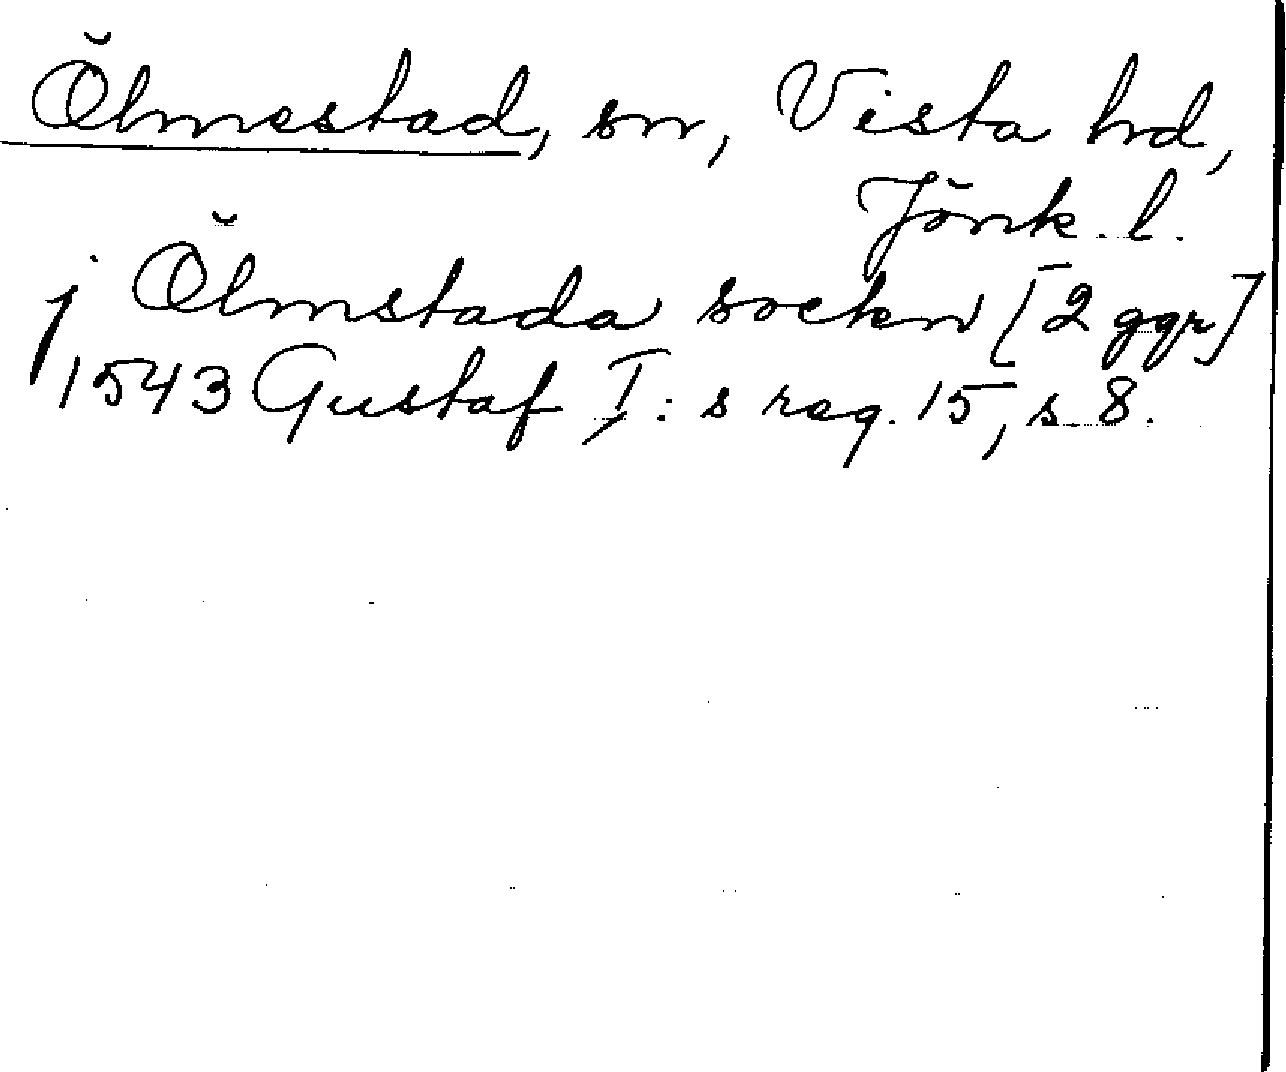 Ölmestad, sn, Vista hd,
Jönk. l.
j Ölmstada socken [2 ggr]
1543 Gustaf I:s reg. 15, s. 8.